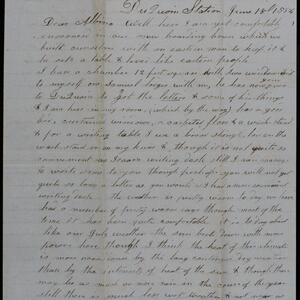 Du Quoin Station, June 18th 1854
Dear Albina Well here I am yet comfortably
ensconced in our new boarding house which we
built ourselves with an eastern man to keep it &
he sets a table & lives like eastern people
I have a chamber 12 feet square with two windows
to myself only Samuel lodges with me, he has now gone
to to get the letters & some of his things
& I am here in our room, (which by the way has a good
bed, curtained windows, a carpeted floor & a wash stand
& for a writing table I use a book though, laid on the
wash stand or in my knee &, though it is not quite so
convenient as Isaacs writing desk still I can manage
to write some to you though perhaps you will not get
quite so long a letter as you would if I had a more convenient
writing desk. The weather is pretty warm to day we have
had a number of pretty warm days though most of the
time it has been quite comfortable It is to day about
like our July weather the sun beats down with more
power here though I think the heat of this climate
is more overcome by the long continued dry weather
than by the intensity of heat of the sun & though there
may be as much or more rain in the course of the year
still there is much less wet